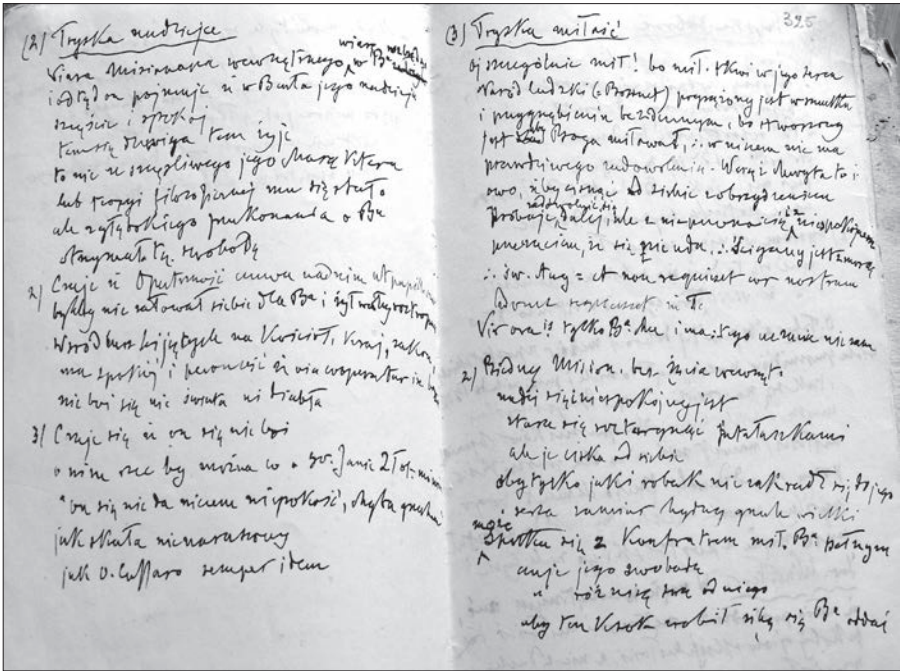 (2) Tryska nadzieje
Wiara Misionarza wewnętrznego wiarę w Ba
i odtąd on pojmuje iż w Bu cała jego nadzieja
szczęście i spokój
tem się dźwiga tem żyje
to nie nieszczęśliwego jego Marzyciela
lub utopji filozoficznej mu się stało
ale z głębokiego przekonania o Bu
otrzymał tę swobodę
2) Czuje iż Opatrzność czuwa nad nim
byleby nic nie ratował siebie dla Ba i żył
Wśród burz bijących na Kościół, Kraj, zakon
ma spokój i pewność iż
nie boi się nic świata ni diabła
3) Czuje się iż on się nie boi
o nim rzec by można co o św. Janie Złot.
"on się nie da niczem niepokoić, chyba grzechem
jak skała nienaruszony
jak O. Caffaro semper idem
395
(3) Tryska miłość
oj szczególnie mił! bo mił. tkwi w jego sercu
Naród ludzki (: Bossuet) pogrążony jest w smutku
i przygnębieniu bezdennym, bo stworzony
jest aby Boga miłował, ∴ w niczem nie ma
prawdziwego zadowolenia. Wciąż chwyta to i
owo, iżby cisnąć od siebie z obrzydzeniem
próbuje zadowolić się dalej, ale z niepewnością i z niespokojnem
przeczuciem, że się nie uda. ∴ Ścigany jest
∴ św. Aug = et non requiescet cor nostrum
donec requiescet in Te
Vir oraᵗⁱˢ tylko Ba chce, i ma
2) Biedny Mision. bez życia wewnęt.
nudzi się niespokojny jest
stara się roztargnąć fatałaszkami
ale je ciska od siebie
oby tylko jaki robak nie zakradł się do jego
serca zamiar
może Spotka się z Konfratrem mił. Ba pełnym
czuje jego swobodę
" różnicę swą od niego
aby ten Krok zrobił siłą się Bu oddać